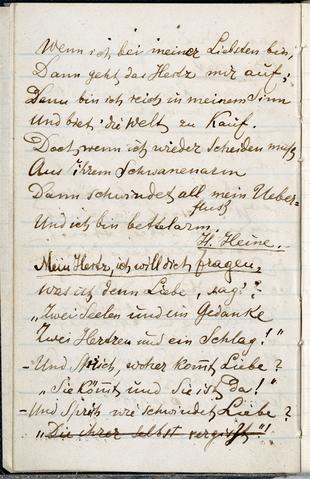 Wenn ich bei meiner Liebsten bin,
Dann geht das Hertz mir auf;
Dann bin ich reich in meinem Sinn
Und biet' die Welt zu Kauf.
Doch wenn ich wieder scheiden muss
Aus ihrem Schwanenarm
Dann schwindet all mein Ueber-
fluss
Und ich bin bettelarm.
H. Heine.
Mein Hertz, ich will dich fragen,
Was ist denn Liebe, sag'?
„Zwei Seelen und ein Gedanke
Zwei Hertzen und ein Schlag!"
- Und Sprich, woher kommt Liebe?
„Sie kömmt und Sie ist da!"
- Und Sprich wie schwindet Liebe?
„Die ihrer selbst vergisst"!